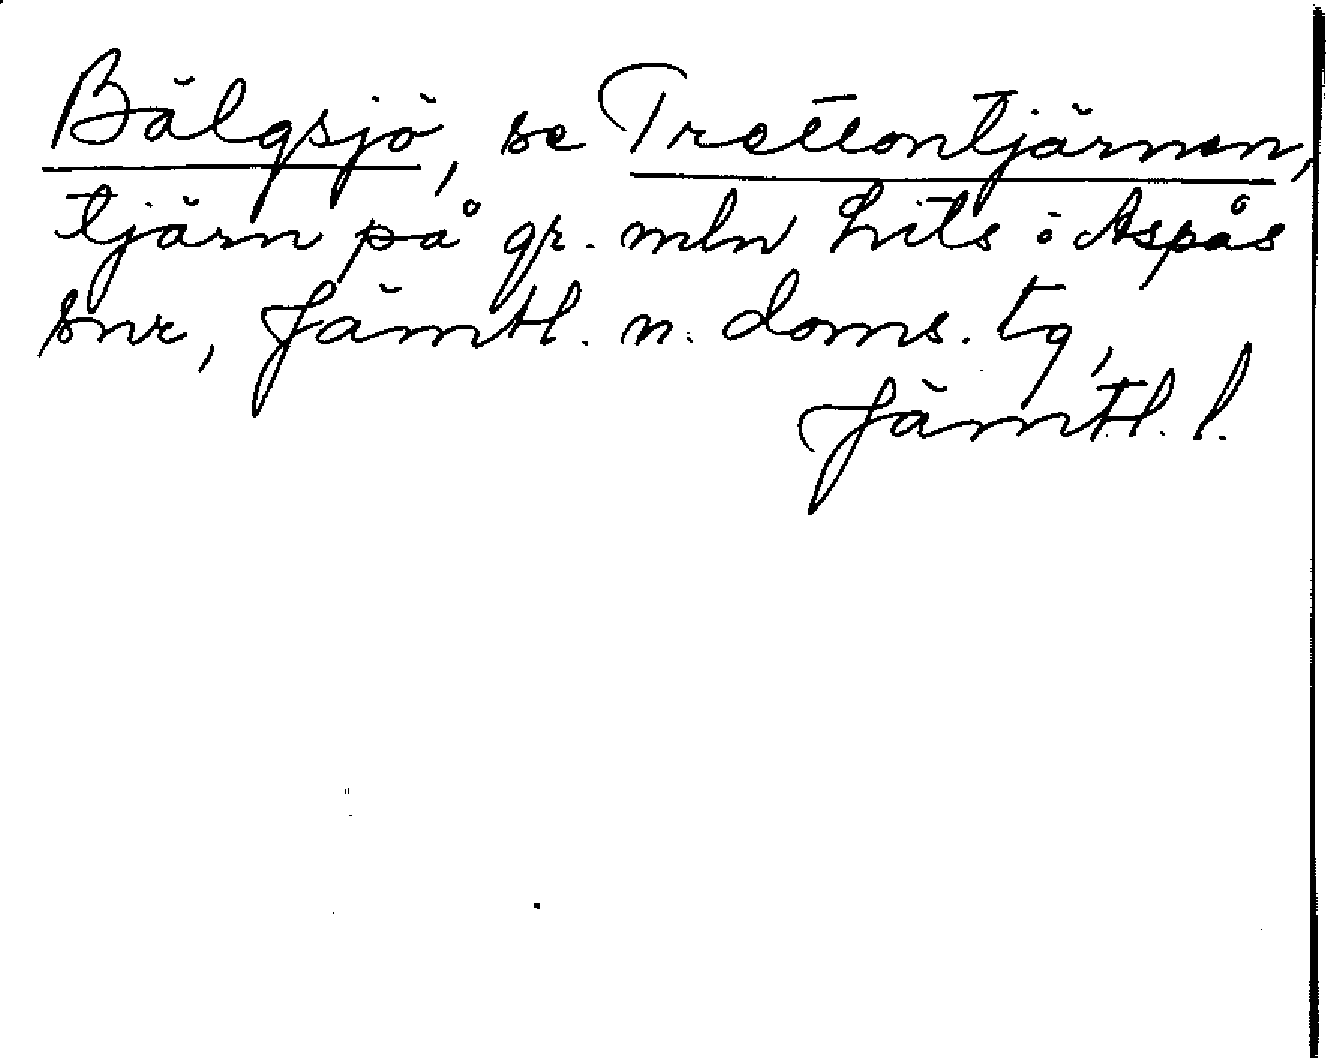 Bälgsjö, se Trettontjärnen,
tjärn på gr. mln Lits o Aspås
snr, Jämtl. n. doms. tg,
Jämtl. l.